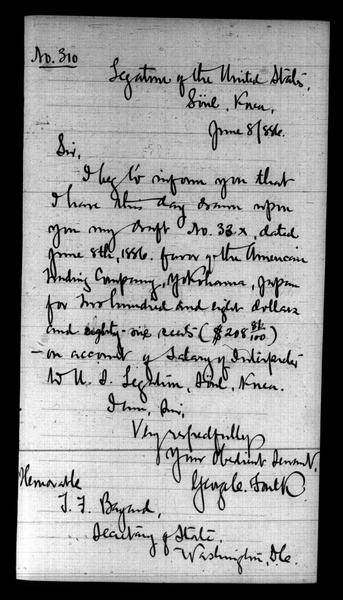 No. 310
Legation of the United States,
Söul, Korea,
June 8/886.
Sir,
I beg to inform you that
I have this day drawn upon
you my draft No. 33x, dated
June 8th, 1886. favor of the American
Trading Company, Yokohama, Japan
for two hundred and eight dollars
and eighty-one cents ($208 81/100)
- on account of Salary of Interpreter
to U.S. Legation, Söul, Korea.
I am, Sir,
Very respectfully
Your Obedient Servant,
George C. Foulk
Honorable
T. F. Bayard,
Secretary of State,
Washington, D.C.